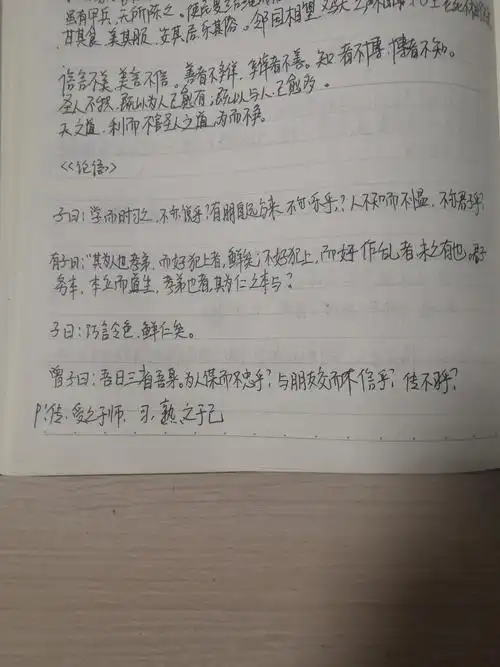 虽有甲兵,无所陈之。使民复结绳
甘其食,美其服,安其居,乐其俗。邻国相望,鸡犬之声相
信言不美,美言不信。善者不辩,辩者不善。知者不博,博者不知。
圣人不积,既以为人己愈有;既以与人,己愈多。
天之道,利而不害圣人之道,为而不争。
《论语》
子曰:学而时习之,不亦说乎?有朋自远方来,不亦乐乎?人不知而不愠,不亦君子乎
有子曰:"其为人也孝弟,而好犯上者,鲜矣;不好犯上,而好作乱者,未之有也。君子
务本,本立而道生,孝弟也者,其为仁之本与?
子曰:巧言令色,鲜仁矣。
曾子曰:吾日三省吾身。为人谋而不忠乎?与朋友交而不信乎?传不习乎?
P:传,受之于师,习,熟之于己